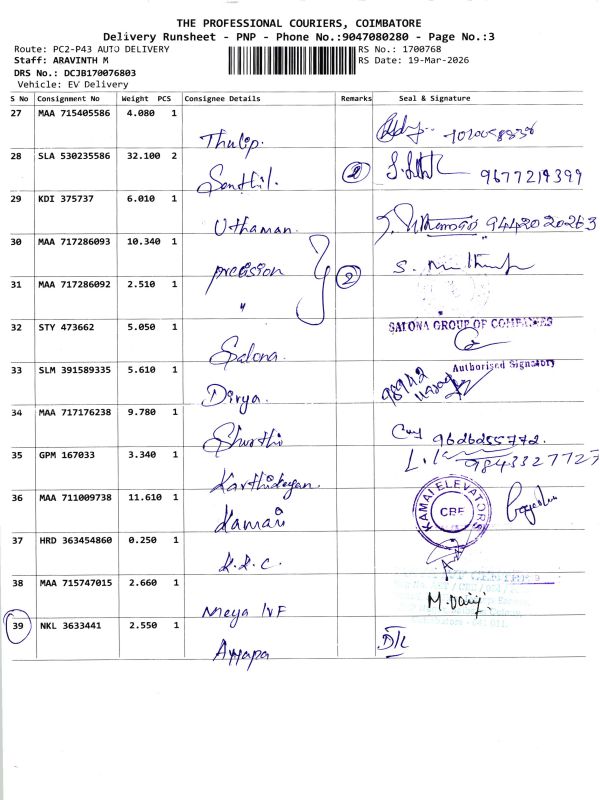 THE PROFESSIONAL COURIERS, COIMBATORE
Delivery Runsheet - PNP - Phone No.:9047080280 - Page No.:3
Route: PC2-P43 AUTO DELIVERY RS No.: 1700768
Staff: ARAVINTH M RS Date: 19-Mar-2026
DRS No.: DCJB170076803
Vehicle: EV Delivery
S No Consignment No Weight PCS Consignee Details Remarks Seal & Signature
27 MAA 715405586 4.080 1
Thulip.
28 SLA 530235586 32.100 2
Senthil. 2 9677219399
29 KDI 375737 6.010 1
Uthaman. 9442020263
30 MAA 717286093 10.340 1
precision 2
31 MAA 717286092 2.510 1
"
32 STY 473662 5.050 1
SALONA GROUP OF COMPANIES
Salona.
33 SLM 391589335 5.610 1
Authorised Signatory
Divya.
34 MAA 717176238 9.780 1
Shruthi 9626255772.
35 GPM 167033 3.340 1
9843327727
Karthikeyan.
36 MAA 711009738 11.610 1
KAMAL ELEVATORS
CBE
Kamal
37 HRD 363454860 0.250 1
K.R.C.
38 MAA 715747015 2.660 1
Meya IVF
39 NKL 3633441 2.550 1
D/L
Ayyapa